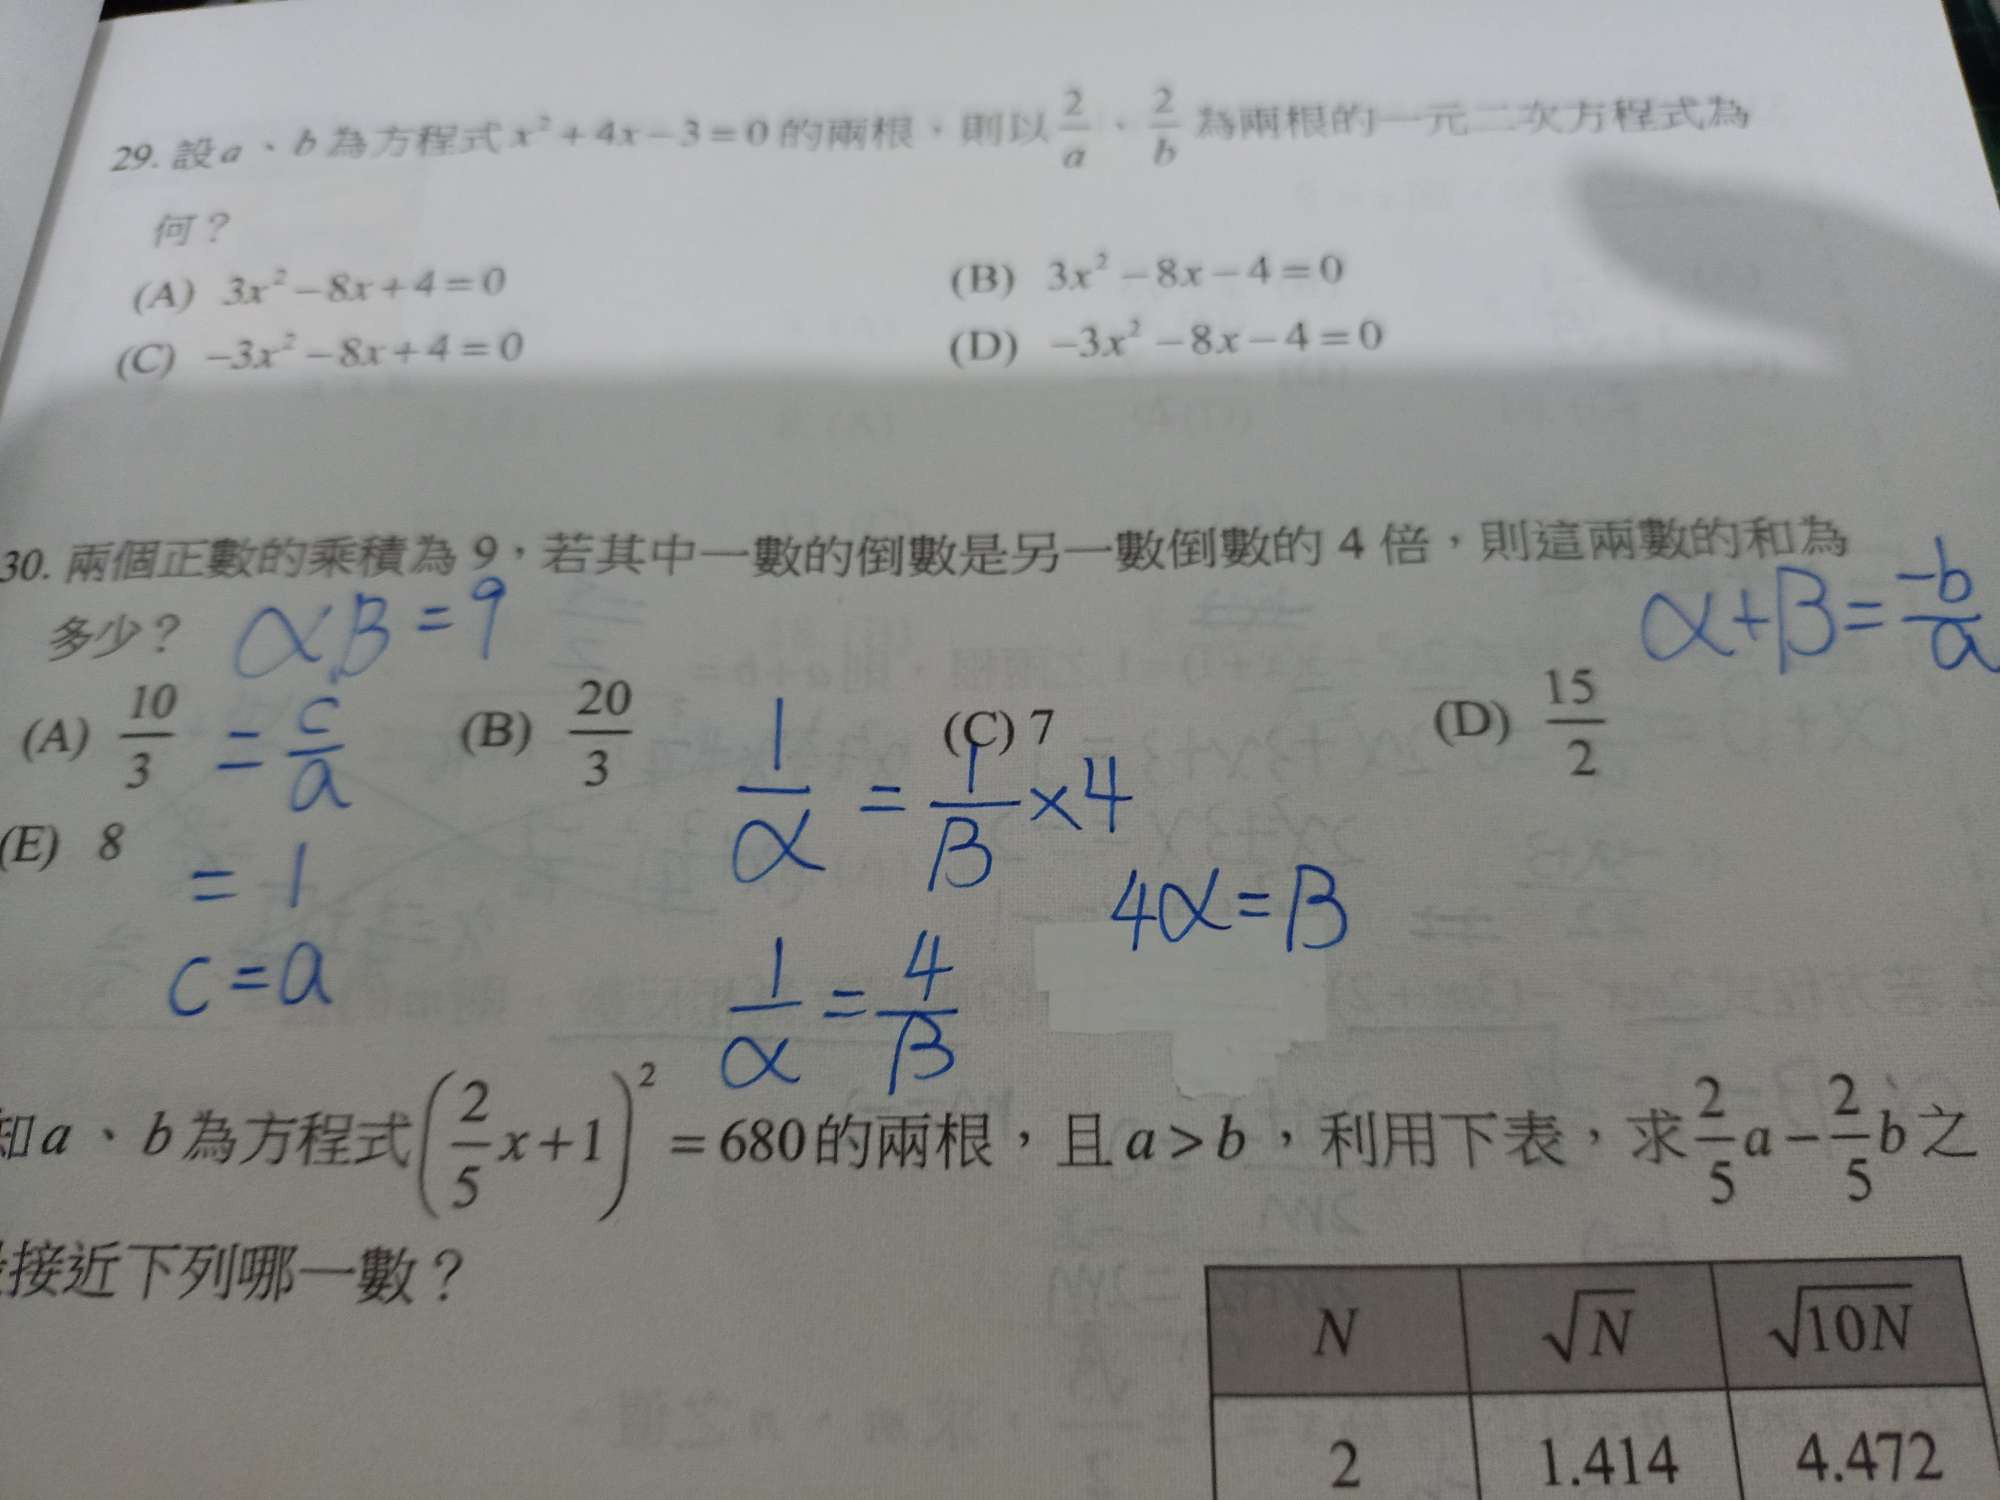 29. 設a、b為方程式x²+4x−3=0的兩根，則以2/a、2/b為兩根的一元二次方程式為
何？
(A) 3x²−8x+4=0 (B) 3x²−8x−4=0
(C) −3x²−8x+4=0 (D) −3x²−8x−4=0
30. 兩個正數的乘積為9，若其中一數的倒數是另一數倒數的4倍，則這兩數的和為
多少？ αβ=9 α+β=-b/a
(A) 10/3 (B) 20/3 (C) 7 (D) 15/2
=c/a
1/α = 1/β ×4
(E) 8
=1
4α=β
c=a
1/α = 4/β
a、b為方程式(2/5x+1)²=680的兩根，且a>b，利用下表，求2/5a−2/5b之
接近下列哪一數？
N √N √10N
2 1.414 4.472